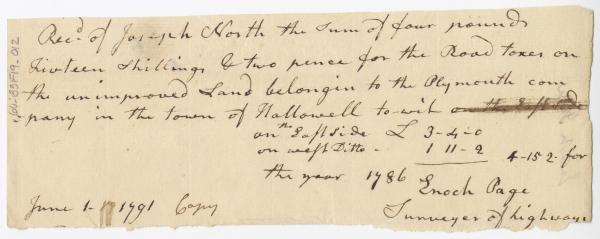 Rec.d of Joseph North the Sum of four pounds
fivteen Shillings & two pence for the Road taxes on
the unimproved Land belongin to the Plymouth com
pany in the town of Hallowell to wit on the East side
on the East side £ 3-4-0
on west Ditto - 1 11-2
4-15 2- for
the year 1786
Enoch Page
Surveyer of highways
June 1- 1791 Copy